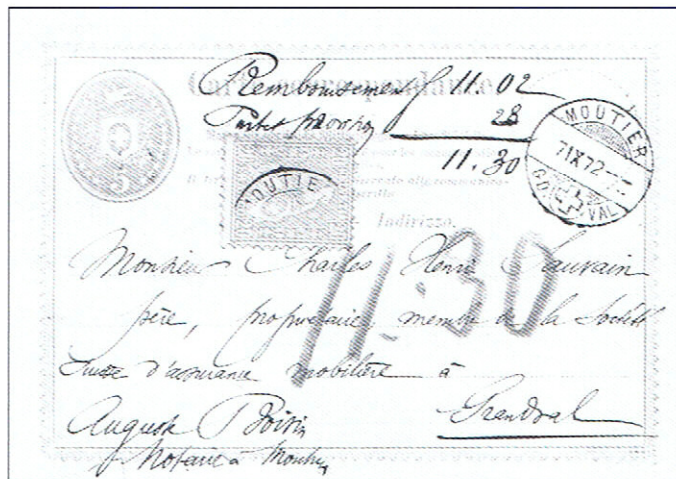 Carte-correspondance
Remboursement f 11.02
28
11.30
5
MOUTIER
7 IX 72
GD. VAL
MOUTIE
Indirizzo.
11.30
Monsieur Charles Henri Sauvain
père, propriétaire, membre de la Société
Suisse d'assurance mobilière à
Grandval
Auguste Boivin
Notaire à Moutier